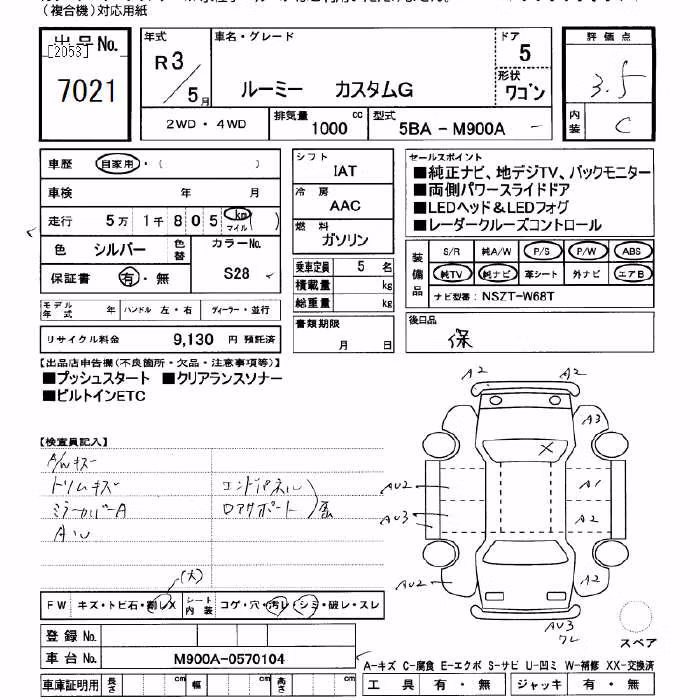 （複合機）対応用紙
出品No.
[2053]
7021
年式 R3/5月
車名・グレード
ルーミー　カスタムG
ドア 5
形状 ワゴン
評価点
3.5
内装 C
2WD・4WD
排気量 1000 cc
型式 5BA - M900A
車歴 自家用・（　）
車検 年 月
走行 5万 1千 8 0 5 km マイル（　）
色 シルバー 色替 カラーNo. S28
保証書 有・無
モデル年式 年 ハンドル 左・右 ディーラー・並行
リサイクル料金 9,130 円 預託済
シフト IAT
冷房 AAC
燃料 ガソリン
乗車定員 5 名
積載量 kg
総重量 kg
書類期限
月 日
セールスポイント
■純正ナビ、地デジTV、バックモニター
■両側パワースライドドア
■LEDヘッド＆LEDフォグ
■レーダークルーズコントロール
装備品 S/R 純A/W P/S P/W ABS
純TV 純ナビ 革シート 外ナビ エアB
ナビ型番： NSZT-W68T
後日品
保
【出品店申告欄(不良箇所・欠品・注意事項等)】
■プッシュスタート ■クリアランスソナー
■ビルトインETC
【検査員記入】
A/Wキズ
トリムキズ
ミラーカバーA
コンドパネル
ロアサポート
AW
(大)
FW キズ・トビ石・割レX シート内装 コゲ・穴・汚レ・シミ・破レ・スレ
登録No.
車台No. M900A-0570104
車庫証明用 長さ cm 幅 cm 高さ cm
A2 A2
A3
X
AU2 A1
AU3 A2
AU2 A2
AU3
ワレ
スペア
A-キズ C-腐食 E-エクボ S-サビ U-凹ミ W-補修 XX-交換済
工具 有・無 ジャッキ 有・無